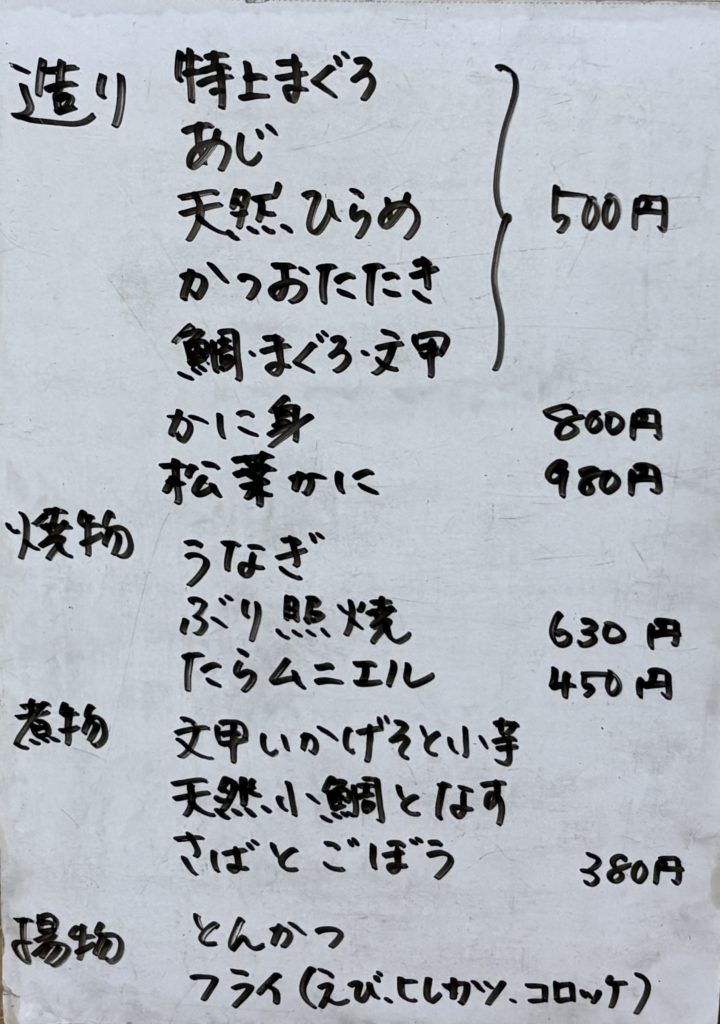 造り 特上まぐろ
あじ
天然ひらめ 500円
かつおたたき
鯛・まぐろ・文甲
かに身 800円
松葉かに 980円
焼物 うなぎ
ぶり照焼 630円
たらムニエル 450円
煮物 文甲いかげそと小芋
天然小鯛となす
さばとごぼう 380円
揚物 とんかつ
フライ(えび、ヒレカツ、コロッケ)